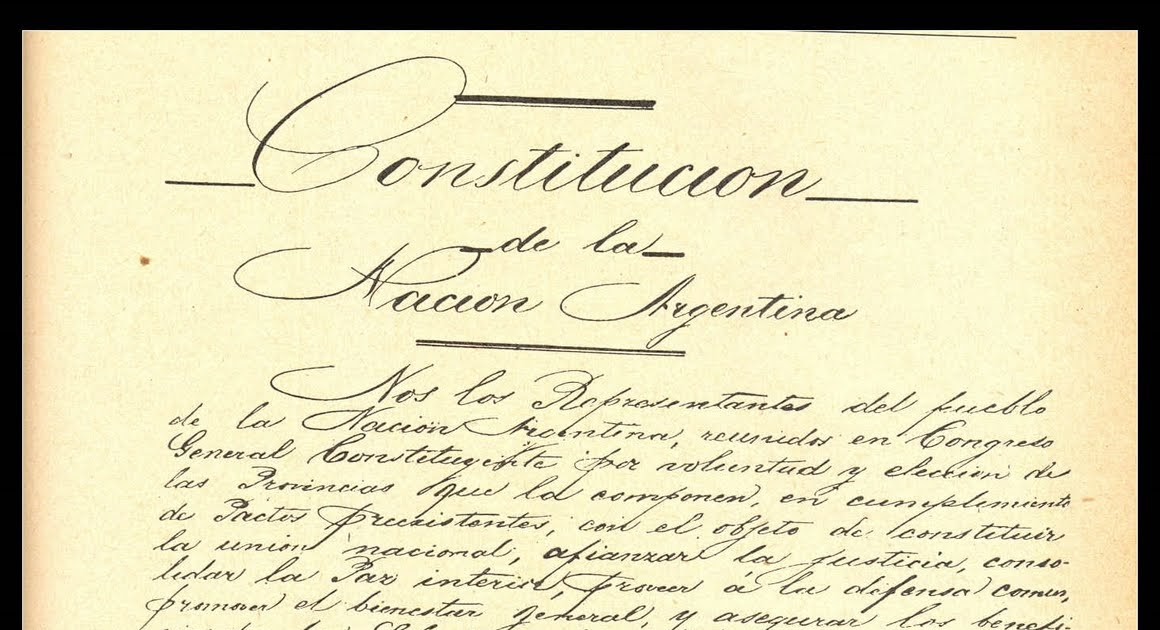 Constitucion
de la
Nacion Argentina
Nos los Representantes del pueblo
de la Nacion Argentina, reunidos en Congreso
General Constituyente por voluntad y eleccion de
las Provincias que la componen, en cumplimiento
de Pactos preexistentes, con el objeto de constituir
la union nacional, afianzar la justicia, conso-
lidar la Paz interior, proveer á la defensa comun,
promover el bienestar general, y asegurar los benefi-